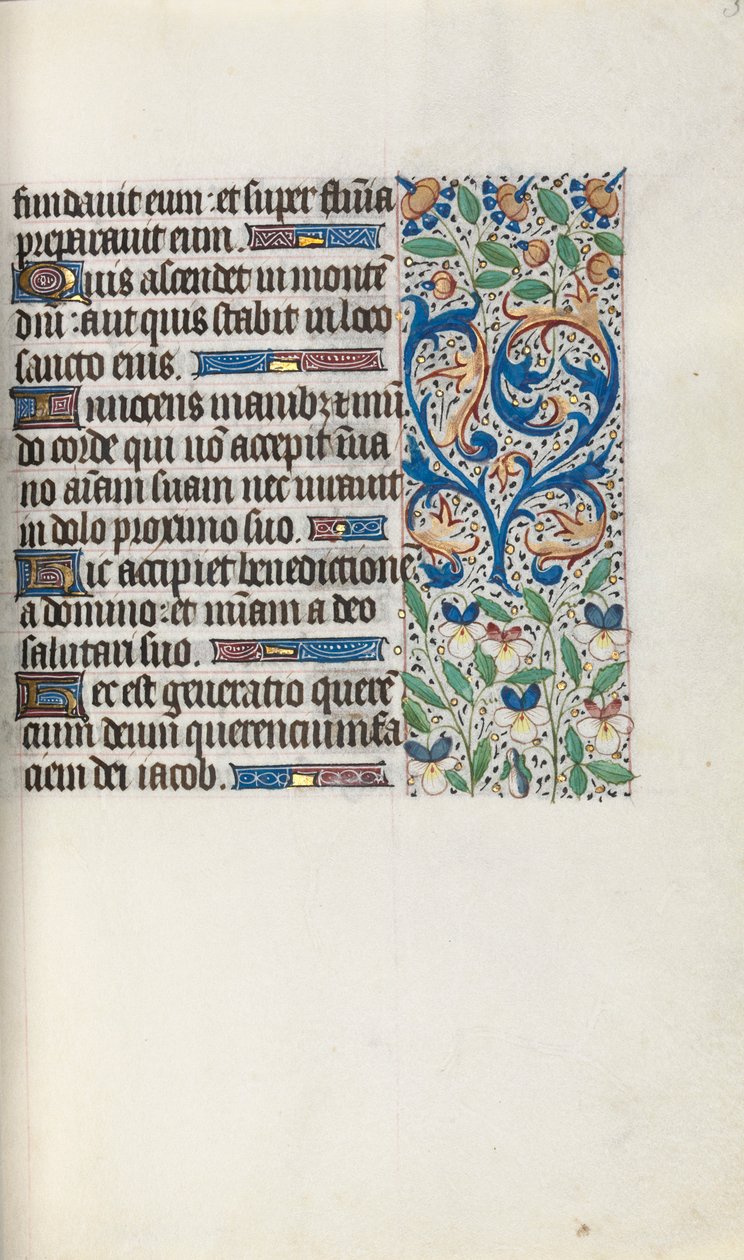 3
fundavit eum : et super flu̅i̅a
preparavit eum.
Quis ascendet in monte̅
dn̅i : aut quis stabit in loco
sancto eius.
Innocens manibꝫ ⁊ mu̅
do corde qui no̅ accepit i̅ va
no ai̅am suam nec iuravit
in dolo proximo suo.
Hic accipiet benedictione̅
a domino : et mi̅am a deo
salutari suo.
Hec est generatio quere̅
cium deum querencium fa
ciem dei iacob.